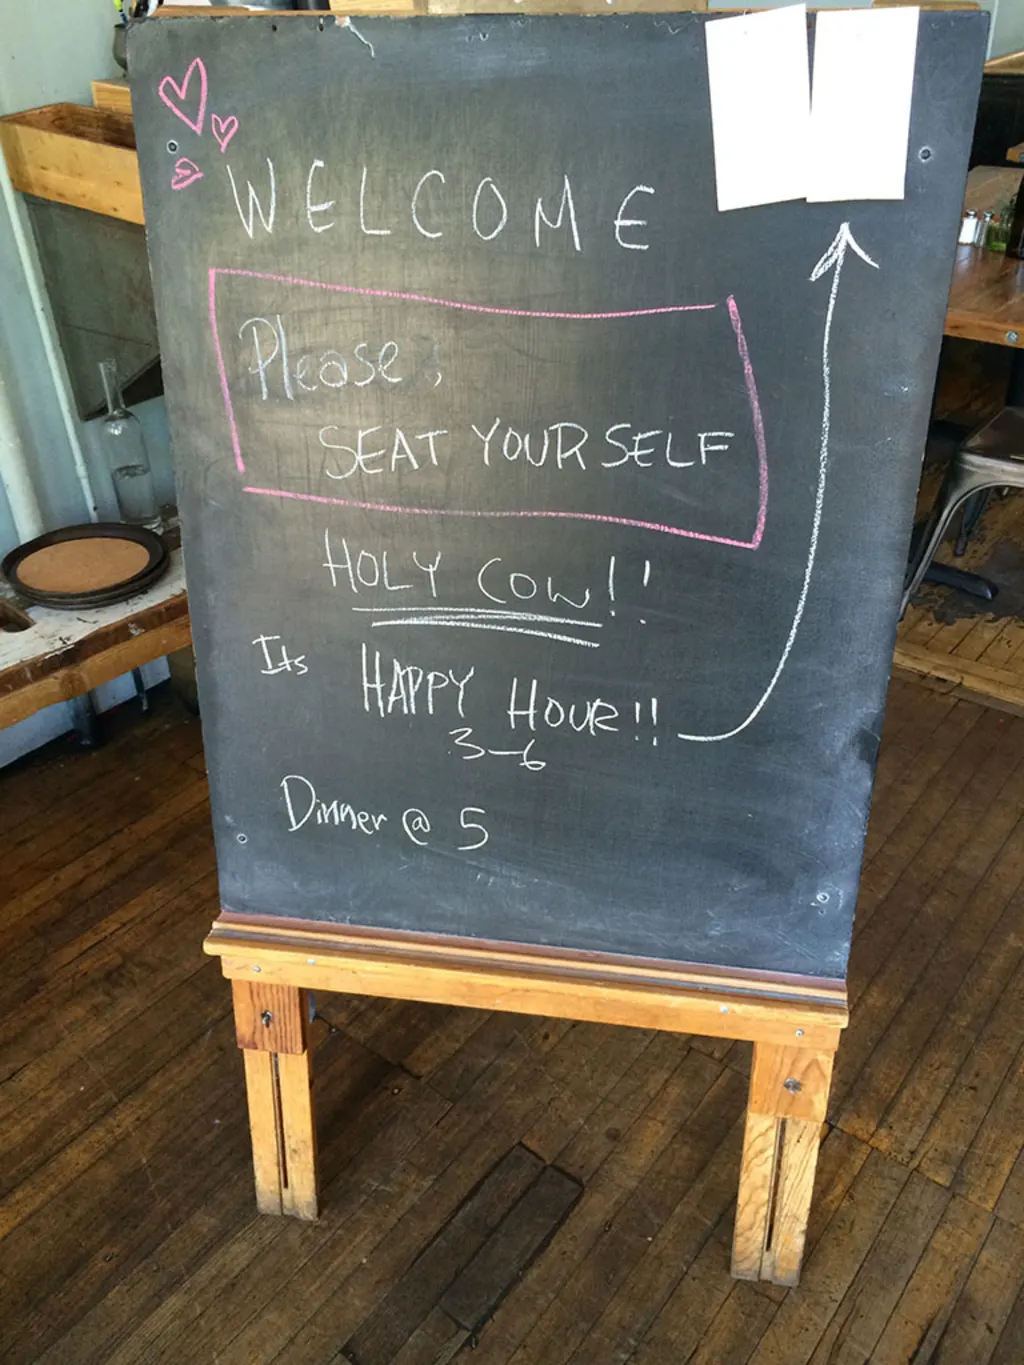 WELCOME
Please,
SEAT YOURSELF
HOLY COW!!
Its HAPPY HOUR!!
3-6
Dinner @ 5